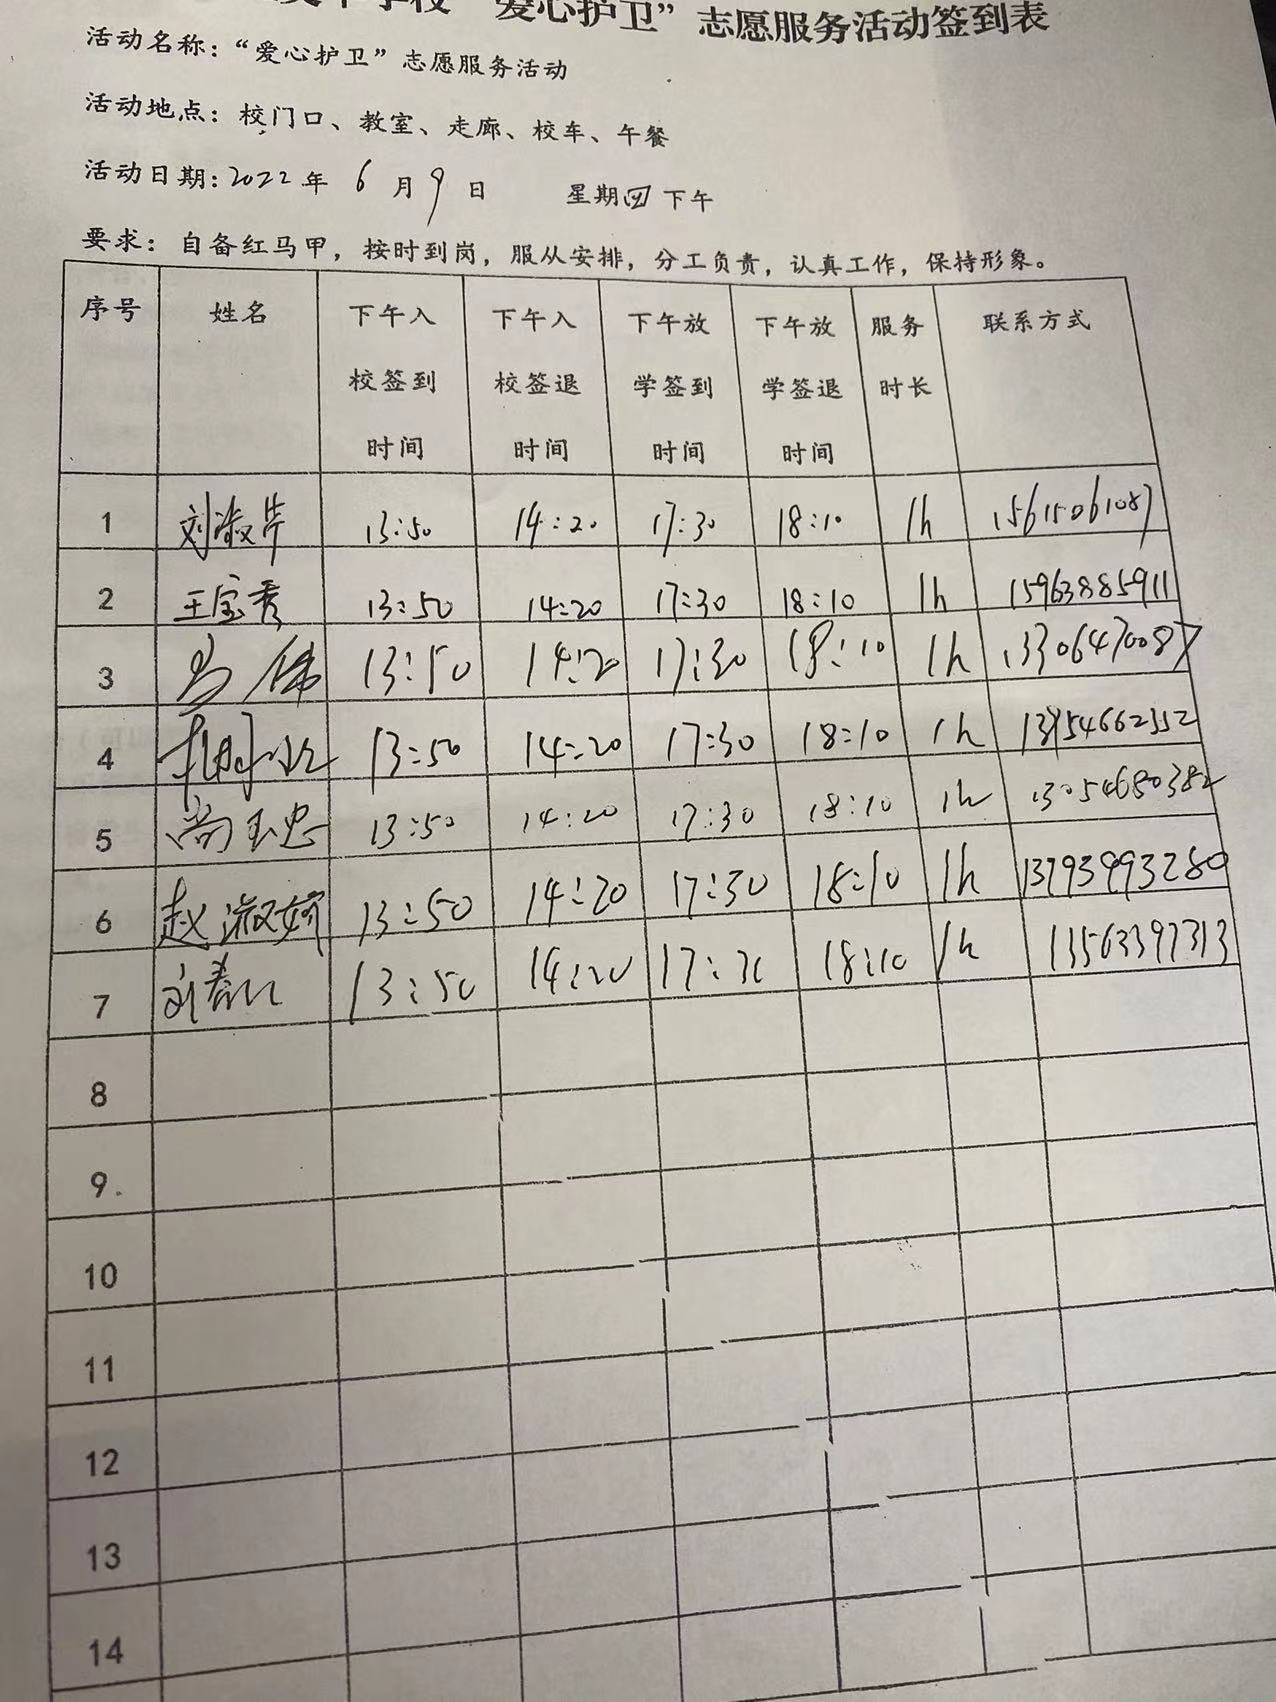 学校“爱心护卫”志愿服务活动签到表
活动名称：“爱心护卫”志愿服务活动
活动地点：校门口、教室、走廊、校车、午餐
活动日期：2022年 6月9日 星期四下午
要求：自备红马甲，按时到岗，服从安排，分工负责，认真工作，保持形象。
序号 姓名 下午入校签到时间 下午入校签退时间 下午放学签到时间 下午放学签退时间 服务时长 联系方式
1 刘淑芹 13:50 14:20 17:30 18:10 1h 15615061087
2 王宝秀 13:50 14:20 17:30 18:10 1h 15963885911
3 马伟 13:50 14:20 17:30 18:10 1h 13306470087
4 13:50 14:20 17:30 18:10 1h
5 尚玉忠 13:50 14:20 17:30 18:10 1h 13054680382
6 赵淑娇 13:50 14:20 17:30 18:10 1h 13793993280
7 刘春 13:50 14:20 17:30 18:10 1h 13563397313
8
9
10
11
12
13
14